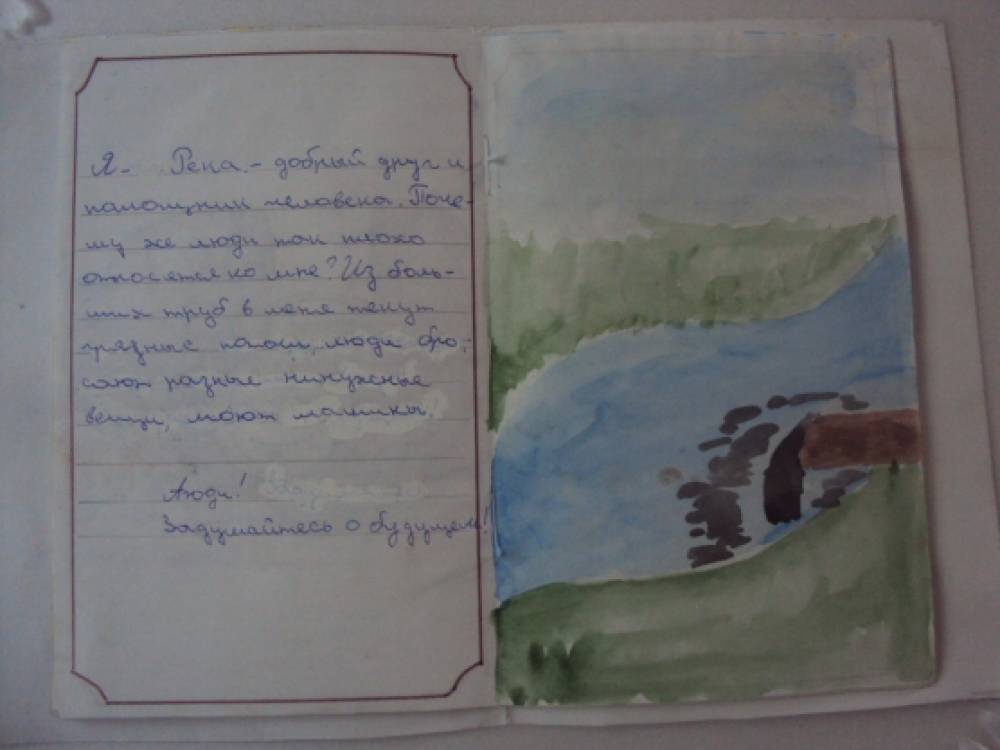 Я - Река. - добрый друг и
помощник человека. Поче-
му же люди так плохо
относятся ко мне? Из боль-
ших труб в меня текут
грязные потоки, люди бро-
сают разные ненужные
вещи, моют машины.
Люди!
Задумайтесь о будущем!